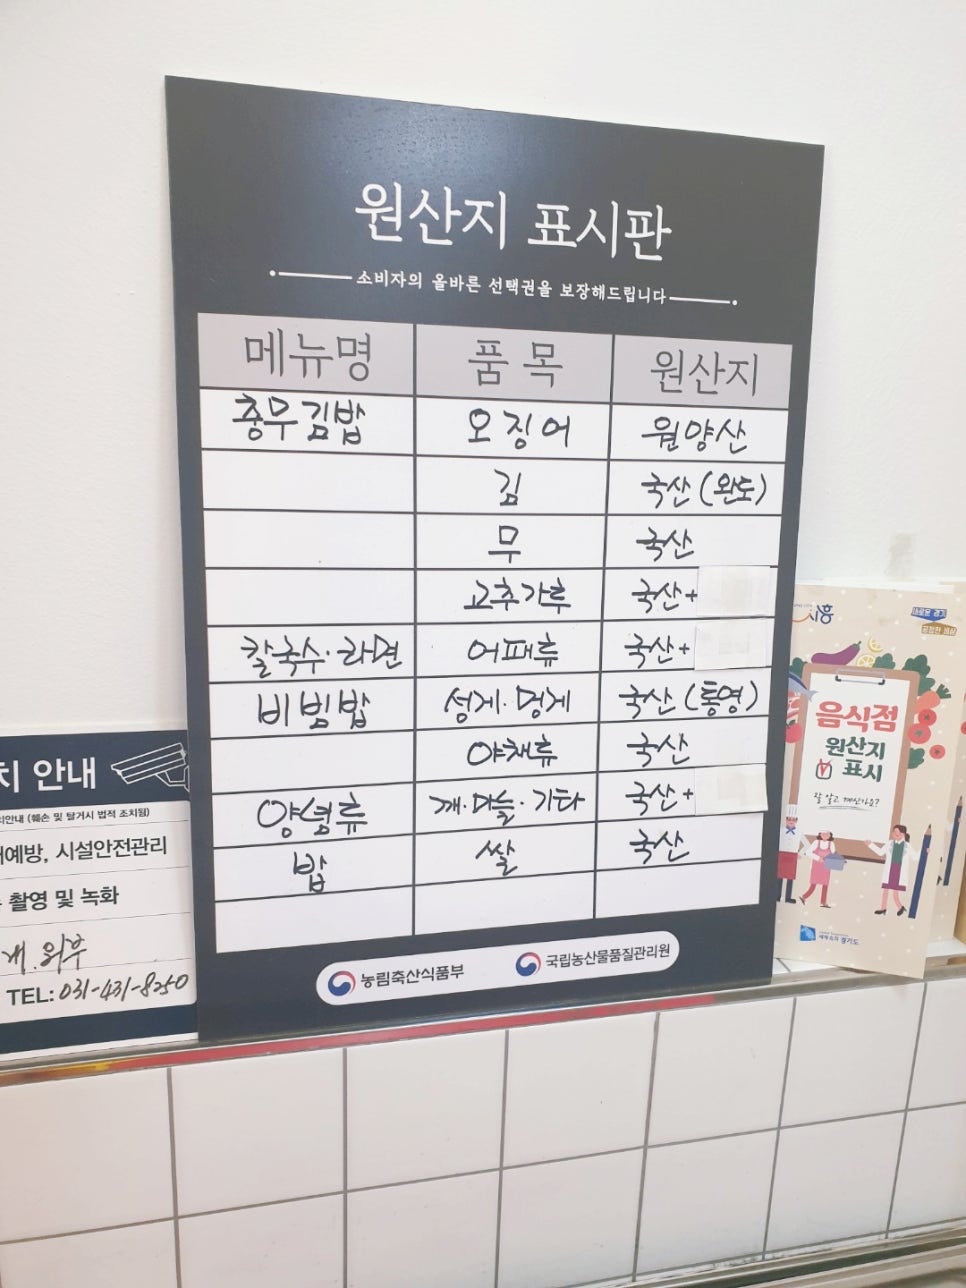 원산지 표시판
소비자의 올바른 선택권을 보장해드립니다
메뉴명 품목 원산지
충무김밥 오징어 원양산
김 국산(완도)
무 국산
고추가루 국산+
칼국수·라면 어패류 국산+
비빔밥 성게·멍게 국산(통영)
야채류 국산
양념류 깨·마늘·기타 국산+
밥 쌀 국산
농림축산식품부 국립농산물품질관리원
치 안내
안내 (훼손 및 탈거시 법적 조치됨)
예방, 시설안전관리
촬영 및 녹화
내.외부
TEL: 031-431-8250
음식점
원산지
표시
잘 알고 계신가요?
새로운 경기
공정한 세상
세계속의 경기도